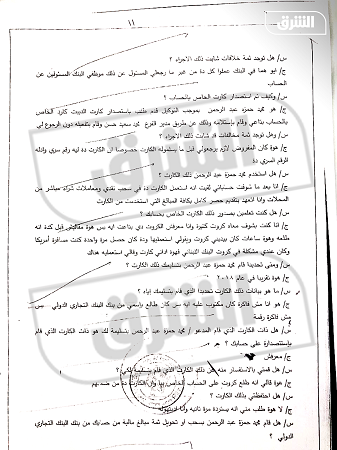 الشرق
١١
س/ هل توجد ثمة خلافات شابت ذلك الاجراء ؟
ج/ ايوا هما في البنك عملوا كل دة من غير ما رجعلي المسئول عن ذلك موظفي البنك المسئولين عن
الحساب
س/ وكيف تم استصدار كارت الخاص بالحساب ؟
ج/ هو محمد حمزه عبد الرحمن بموجب التوكيل قدم طلب باستصدار كارت الديبت كارد الخاص
بالحساب بتاعي وقام بإستلامه وذلك عن طريق مدير الفرع محمد سعيد حسن وقام بتفعيله دون الرجوع لي
س/ وهل توجد ثمة مخالفات قد شابت ذلك الاجراء ؟
ج/ هوة كان المفروض لازم يرجعولي قبل ما يسلموله الكارت خصوصا ان الكارت ده ليه رقم سري وادله
الرقم السري دة
س/ هل استخدم محمد حمزه عبد الرحمن ذلك الكارت ؟
ج/ انا بعد ما شوفت حساباتي لقيت انه استعمل الكارت دة في سحب نقدي ومعاملات شراء مباشر من
المحلات وانا اتعهد بتقديم حصر كامل بكافة المبالغ التي استخدمت من الكارت
س/ هل كنت تعلمين بصدور ذلك الكارت الخاص بحسابك ؟
ج/ انا كنت بشوف معاه كروت كتيرة وانا معرفش الكروت دي بتاعت ايه بس هوة مقاليش قبل كدة انه
طلعه وهوة ساعات كان بيديني كروت ويقولي استعمليها ودة كان حصل مرة واحدة كنت مسافرة أمريكا
وكان عندي مشكلة في كروت البنك اللبناني فهوة اداني كارت وقالي استعمليه هناك
س/ ومتى تحديدا قام محمد حمزه عبد الرحمن بتسليمك تلك الكارت ؟
ج/ هوة تقريبا في عام ٢٠١٨
س/ ما هو بيانات ذلك الكارت تحديدا الذي قام بتسليمك اياه ؟
ج/ هو انا مش فاكرة كان مكتوب عليه ايه بس كان طالع بإسمي من بنك البنك التجاري الدولي بس
مش فاكرة رقمة
س/ هل ذات الكارت الذي قام المدعو / محمد حمزه عبد الرحمن بتسليمة لك هو ذات الكارت الذي قام
بإستصدارة على حسابك ؟
ج/ معرفش
س/ هل قمتي بالاستفسار منه عن ذلك الكارت الذي قام بتسليمة لكي ؟
ج/ هوة قالي انه طلع كروت على الحساب الخاص بيا وان الكارت دة من ضمنهم
س/ هل احتفظتي بذلك الكارت ؟
ج/ لا هوة طلب مني انه يستردة مرة تانية وانا اديتهوله
س/ هل قام محمد حمزه عبد الرحمن بسحب او تحويل ثمة مبالغ مالية من حسابك من بنك البنك التجاري
الدولي ؟